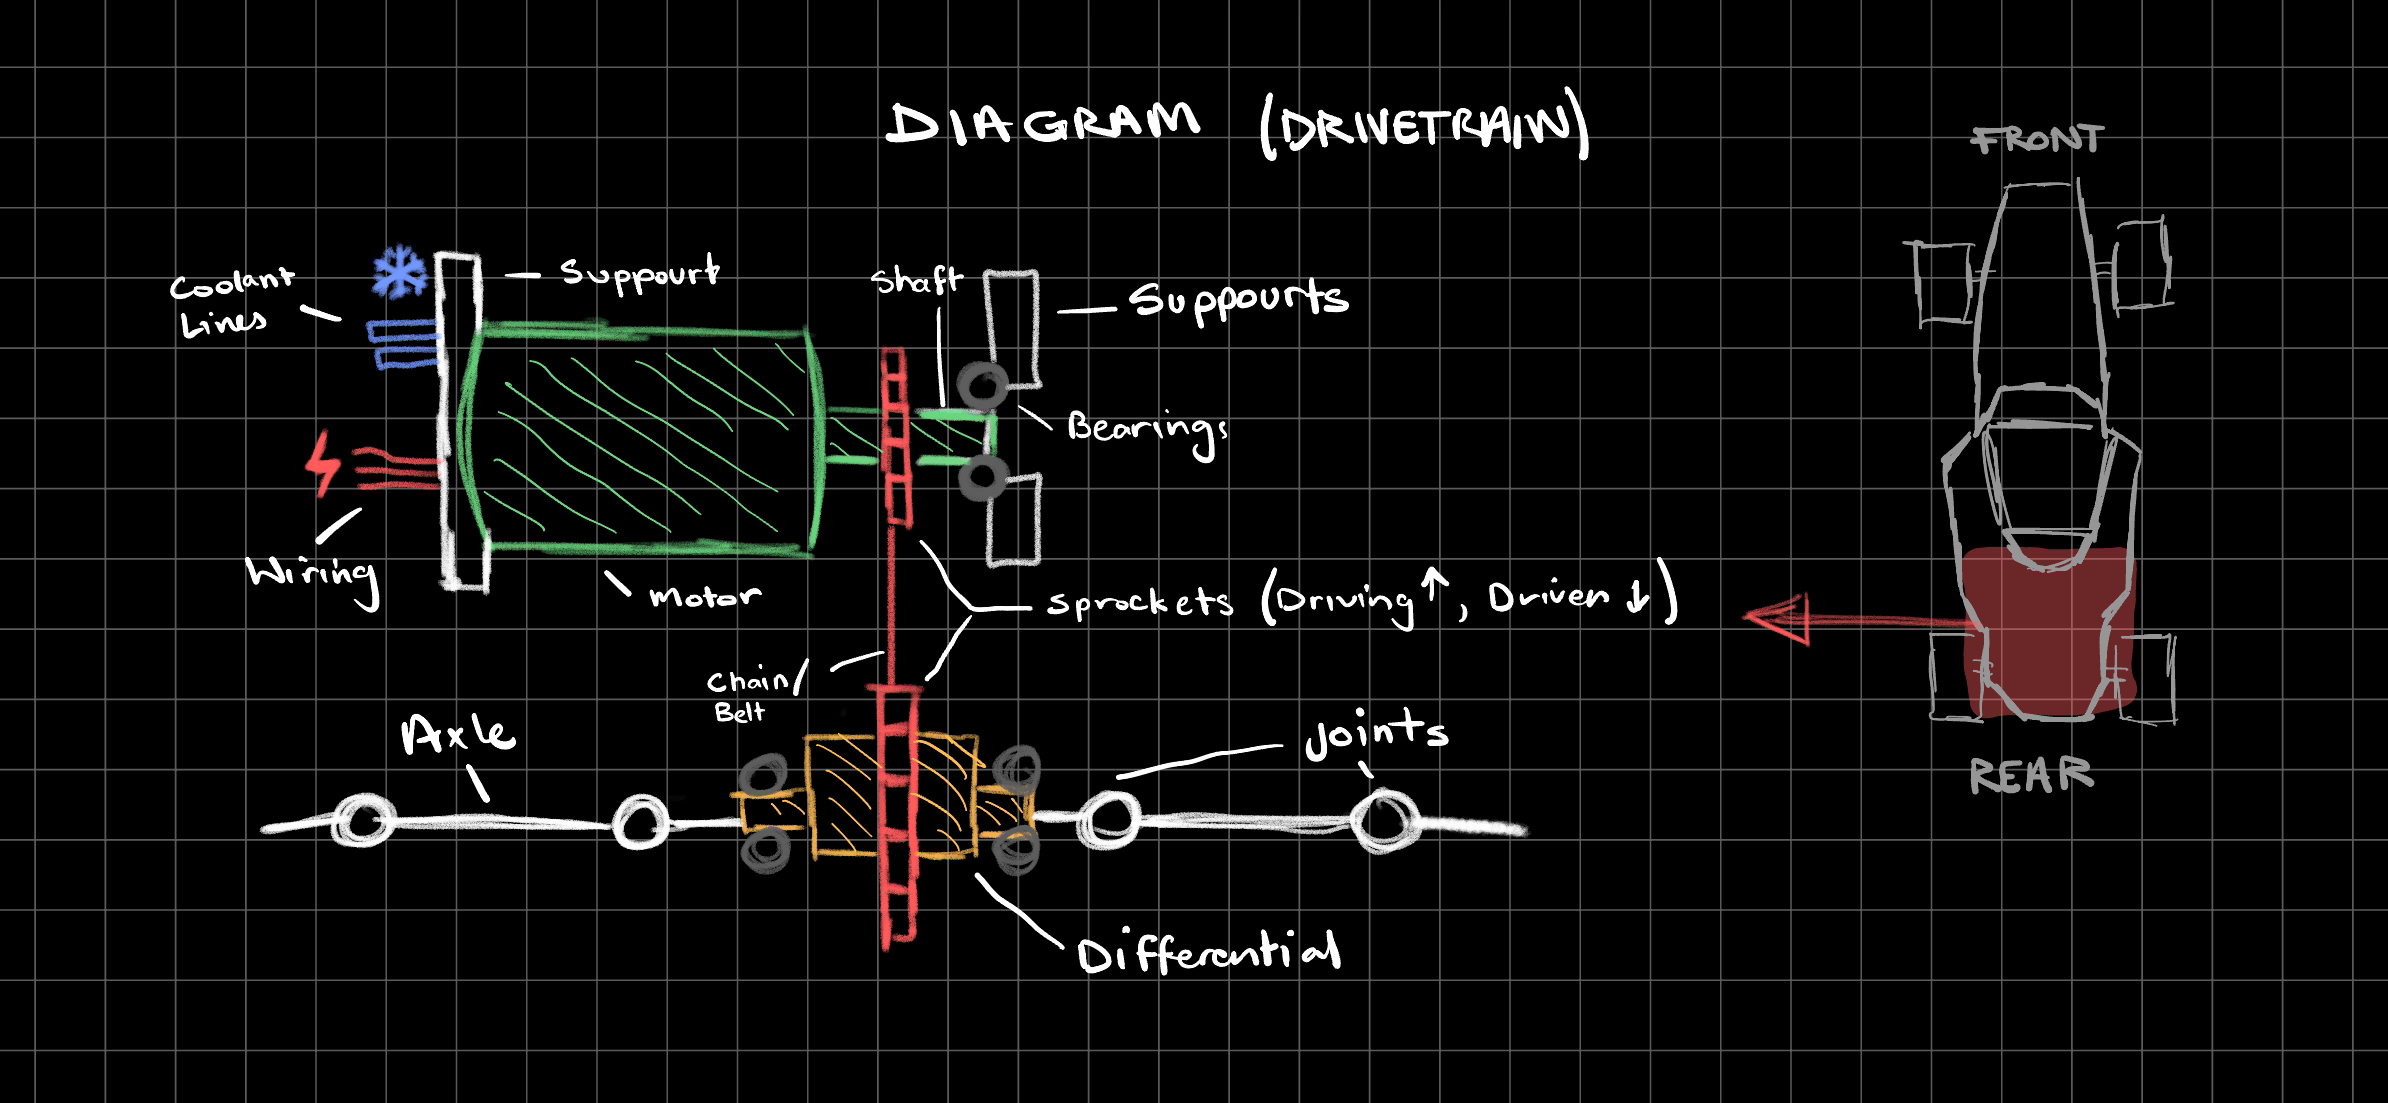 DIAGRAM (DRIVETRAIN)
FRONT
Coolant
Lines
Suppourt
Shaft
Suppourts
Bearings
Wiring
Motor
Sprockets (Driving ↑, Driven ↓)
Chain/
Belt
Axle
Joints
REAR
Differential